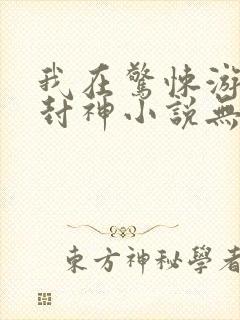 我在驚悚游
封神小說無
東方神秘學者